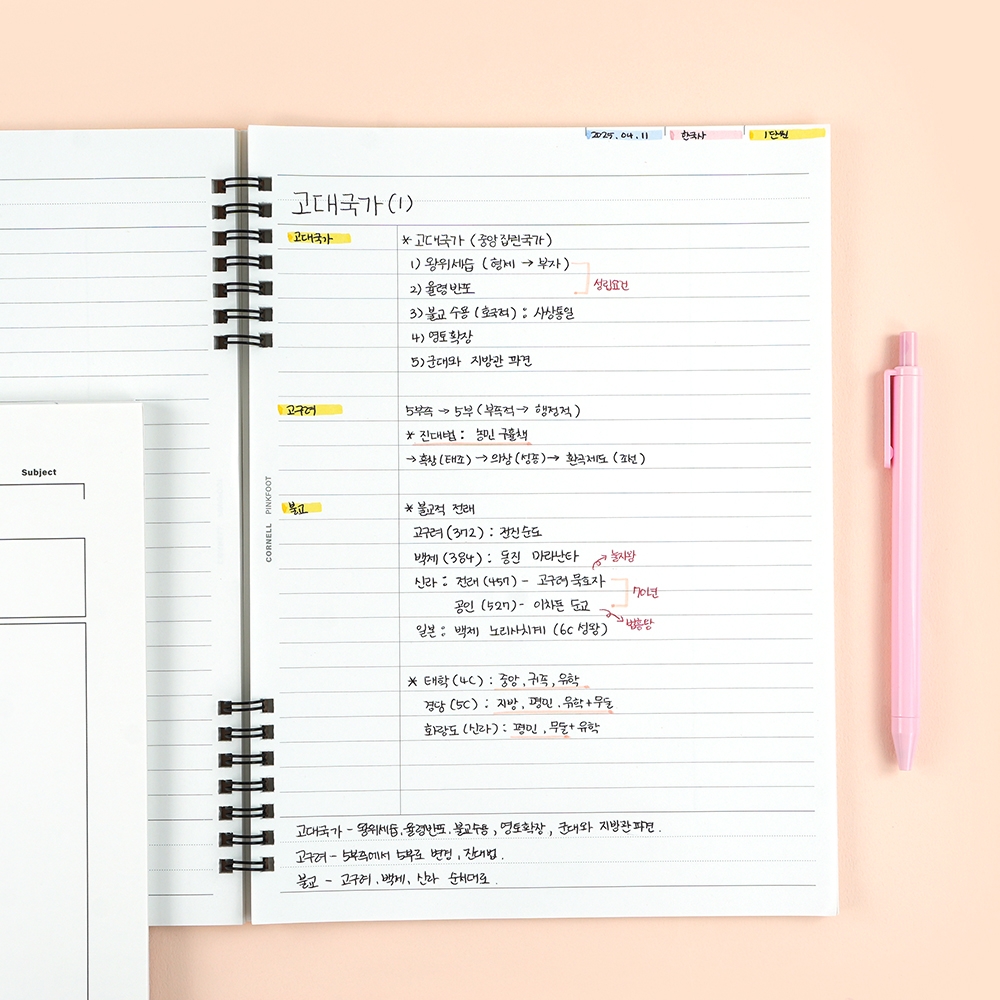 2025. 04. 11 한국사 1단원
고대국가(1)
고대국가
* 고대국가 (중앙 집권국가)
1) 왕위세습 (형제 → 부자)
2) 율령반포
성립요건
3) 불교 수용 (호국적) : 사상통일
4) 영토확장
5) 군대와 지방관 파견
고구려
5부족 → 5부 (부족적 → 행정적)
* 진대법 : 농민 구휼책
→ 흑창(태조) → 의창(성종) → 환곡제도 (조선)
불교
* 불교적 전래
고구려(372) : 전진 순도
백제(384) : 동진 마라난타
눌지왕
신라 : 전래(457) - 고구려 묵호자
70년
공인(527) - 이차돈 순교
법흥왕
일본 : 백제 노리사치계 (6C 성왕)
* 태학(4C) : 중앙, 귀족, 유학
경당(5C) : 지방, 평민, 유학+무술
화랑도(신라) : 평민, 무술+유학
고대국가 - 왕위세습, 율령반포, 불교수용, 영토확장, 군대와 지방관파견.
고구려 - 5부족에서 5부로 변경, 진대법.
불교 - 고구려, 백제, 신라 순서대로.
CORNELL PINKFOOT
Subject